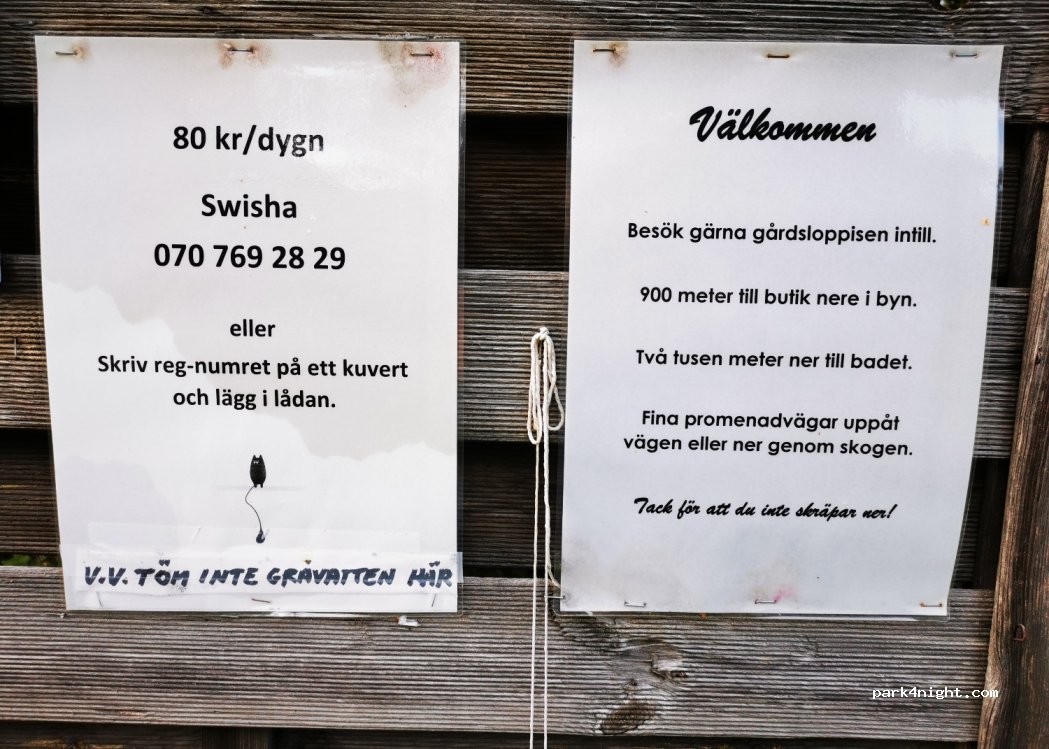 80 kr/dygn
Swisha
070 769 28 29
eller
Skriv reg-numret på ett kuvert
och lägg i lådan.
V.V. TÖM INTE GRÅVATTEN HÄR
Välkommen
Besök gärna gårdsloppisen intill.
900 meter till butik nere i byn.
Två tusen meter ner till badet.
Fina promenadvägar uppåt
vägen eller ner genom skogen.
Tack för att du inte skräpar ner!
park4night.com